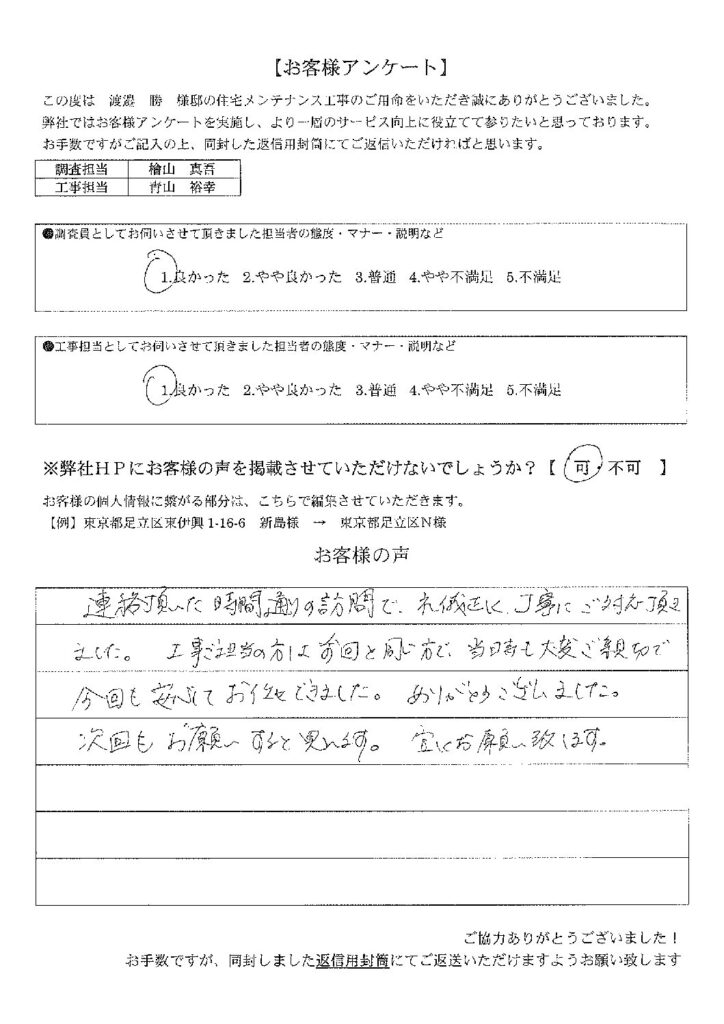 【お客様アンケート】
この度は 渡邉 勝 様邸の住宅メンテナンス工事のご用命をいただき誠にありがとうございました。
弊社ではお客様アンケートを実施し、より一層のサービス向上に役立てて参りたいと思っております。
お手数ですがご記入の上、同封した返信用封筒にてご返信いただければと思います。
調査担当 檜山 真吾
工事担当 青山 裕幸
●調査員としてお伺いさせて頂きました担当者の態度・マナー・説明など
1.良かった 2.やや良かった 3.普通 4.やや不満足 5.不満足
●工事担当としてお伺いさせて頂きました担当者の態度・マナー・説明など
1.良かった 2.やや良かった 3.普通 4.やや不満足 5.不満足
※弊社HPにお客様の声を掲載させていただけないでしょうか？【 可・不可 】
お客様の個人情報に繋がる部分は、こちらで編集させていただきます。
【例】東京都足立区東伊興1-16-6 新島様 → 東京都足立区N様
お客様の声
連絡頂いた時間通りの訪問で、礼儀正しく、丁寧にご対応頂き
ました。 工事ご担当の方は前回と同じ方で、当日も大変ご親切で
今回も安心してお任せできました。 ありがとうございました。
次回もお願いすると思います。 宜しくお願い致します。
ご協力ありがとうございました！
お手数ですが、同封しました返信用封筒にてご返送いただけますようお願い致します